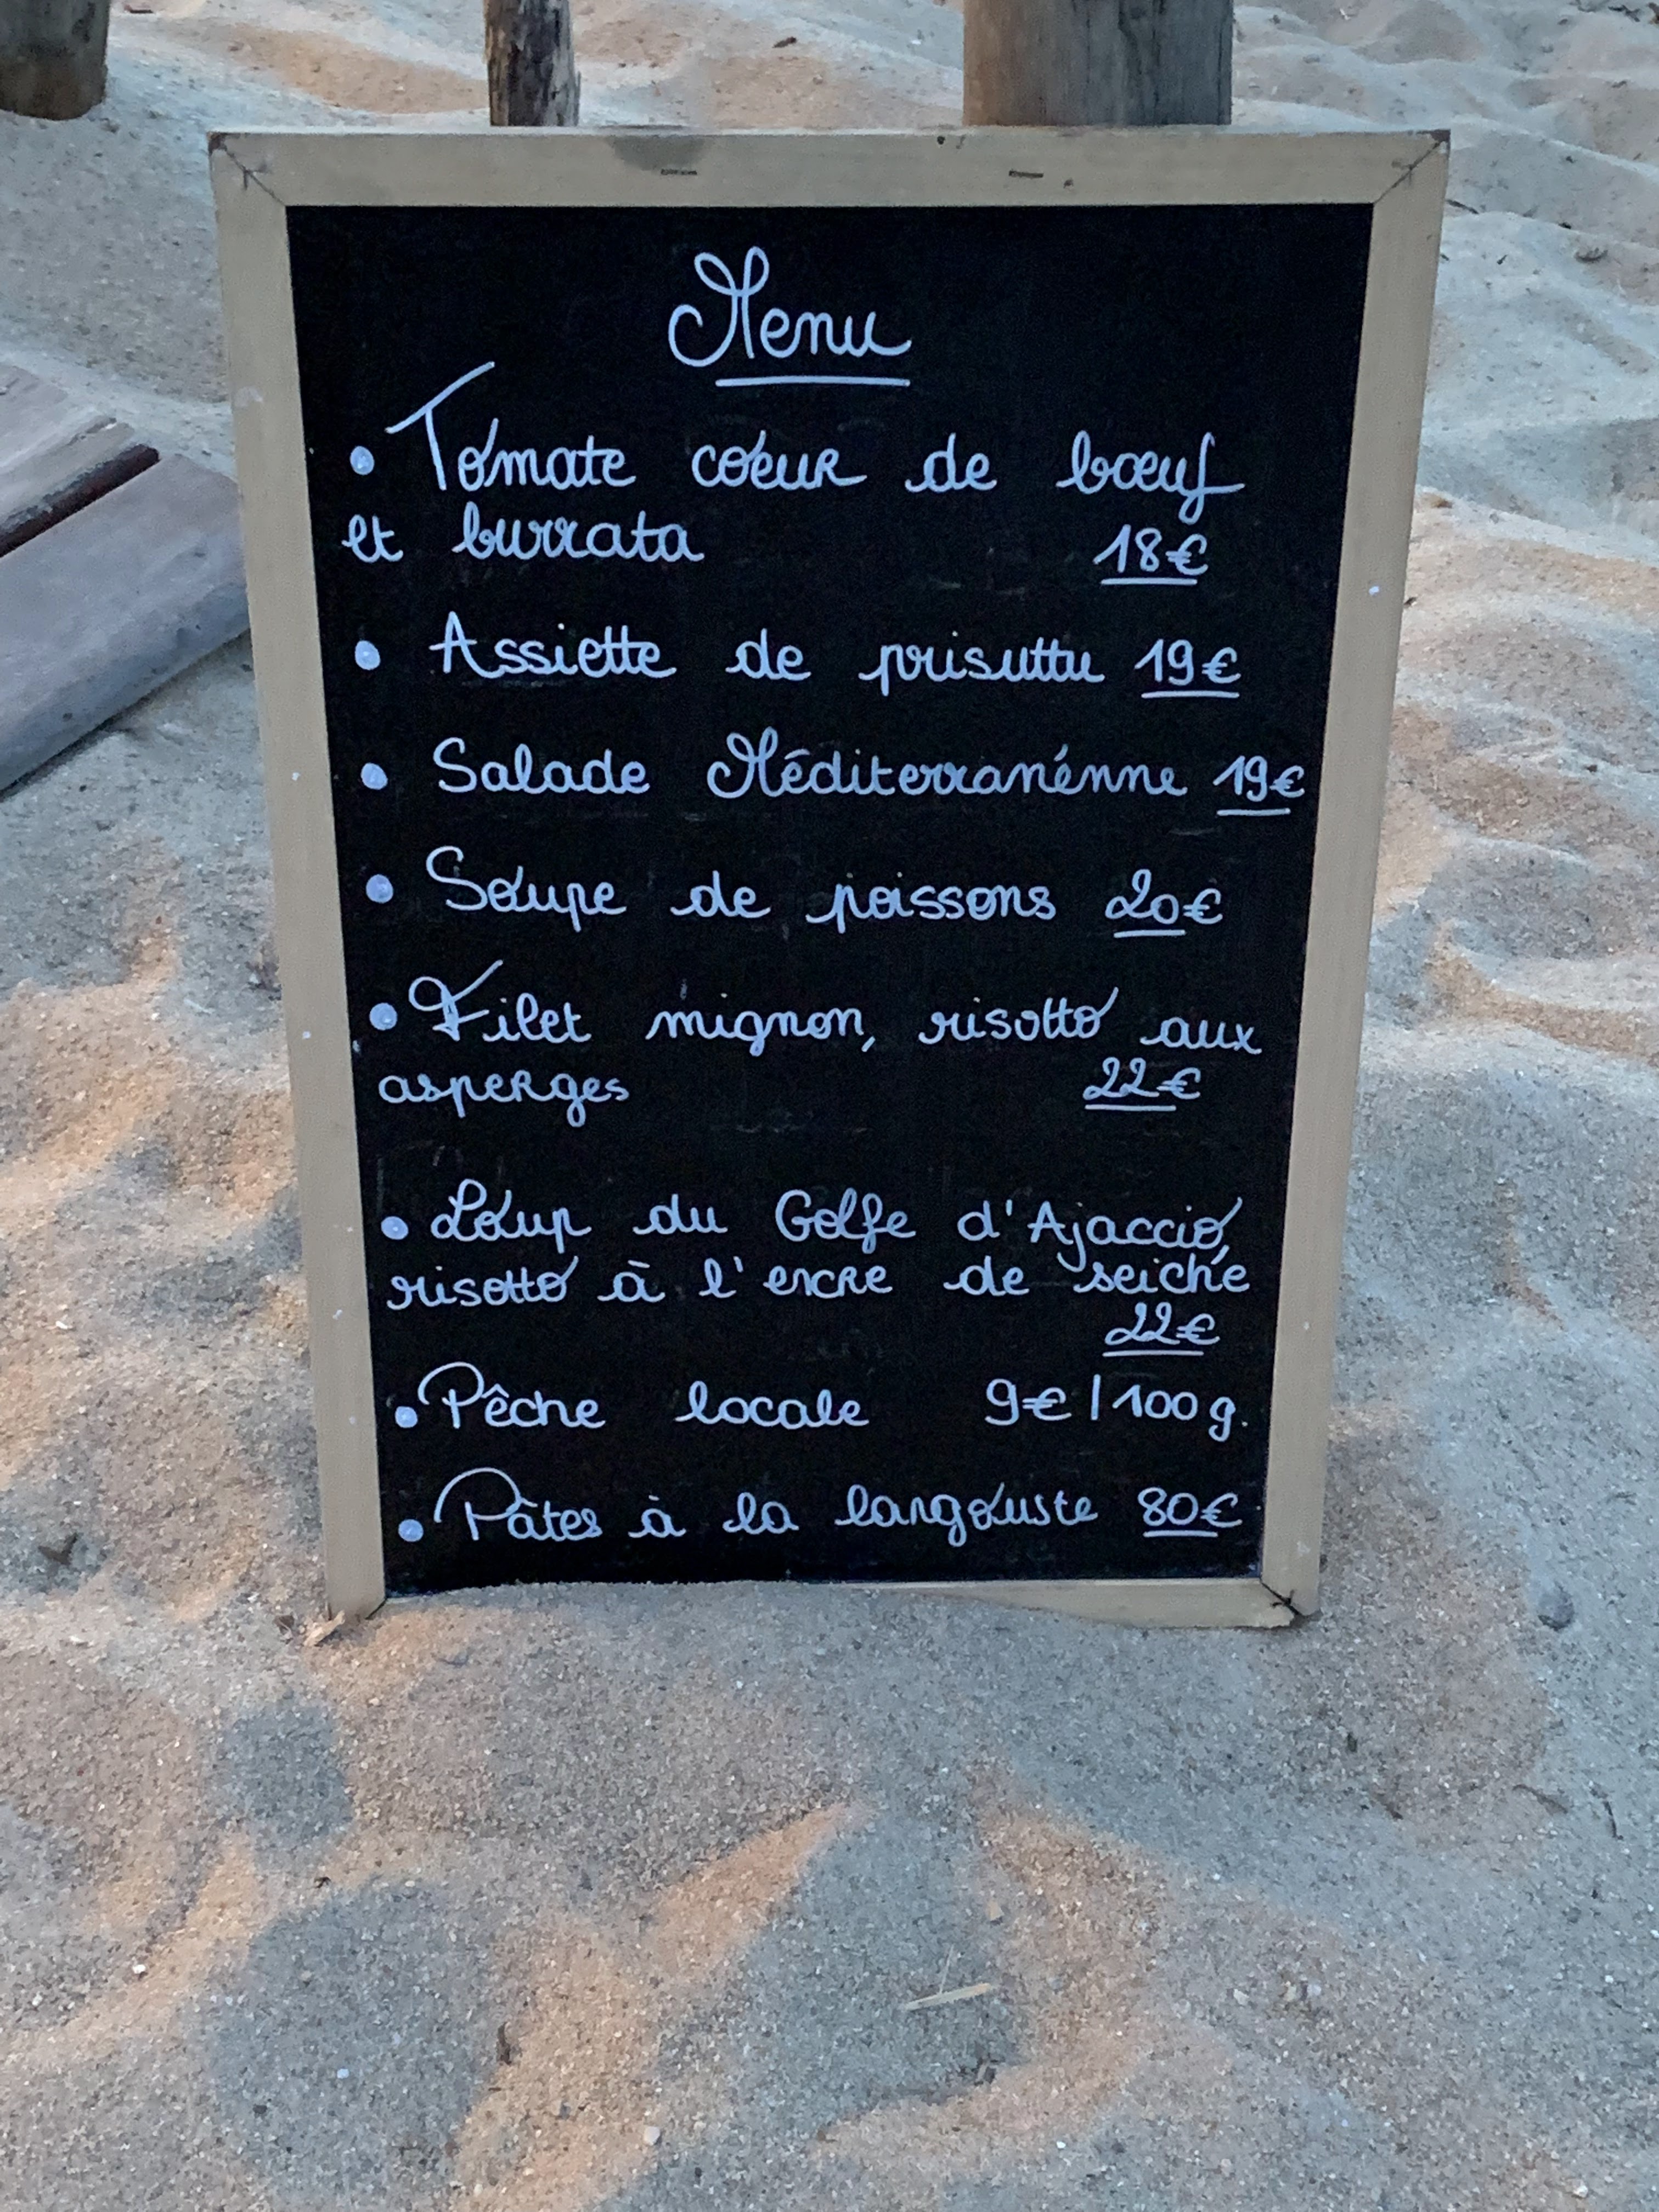 Menu
• Tomate coeur de bœuf
et burrata 18€
• Assiette de prisuttu 19€
• Salade Méditerranénne 19€
• Soupe de poissons 20€
• Filet mignon, risotto aux
asperges 22€
• Loup du Golfe d'Ajaccio,
risotto à l'encre de seiche
22€
• Pêche locale 9€/100g.
• Pâtes à la langouste 80€